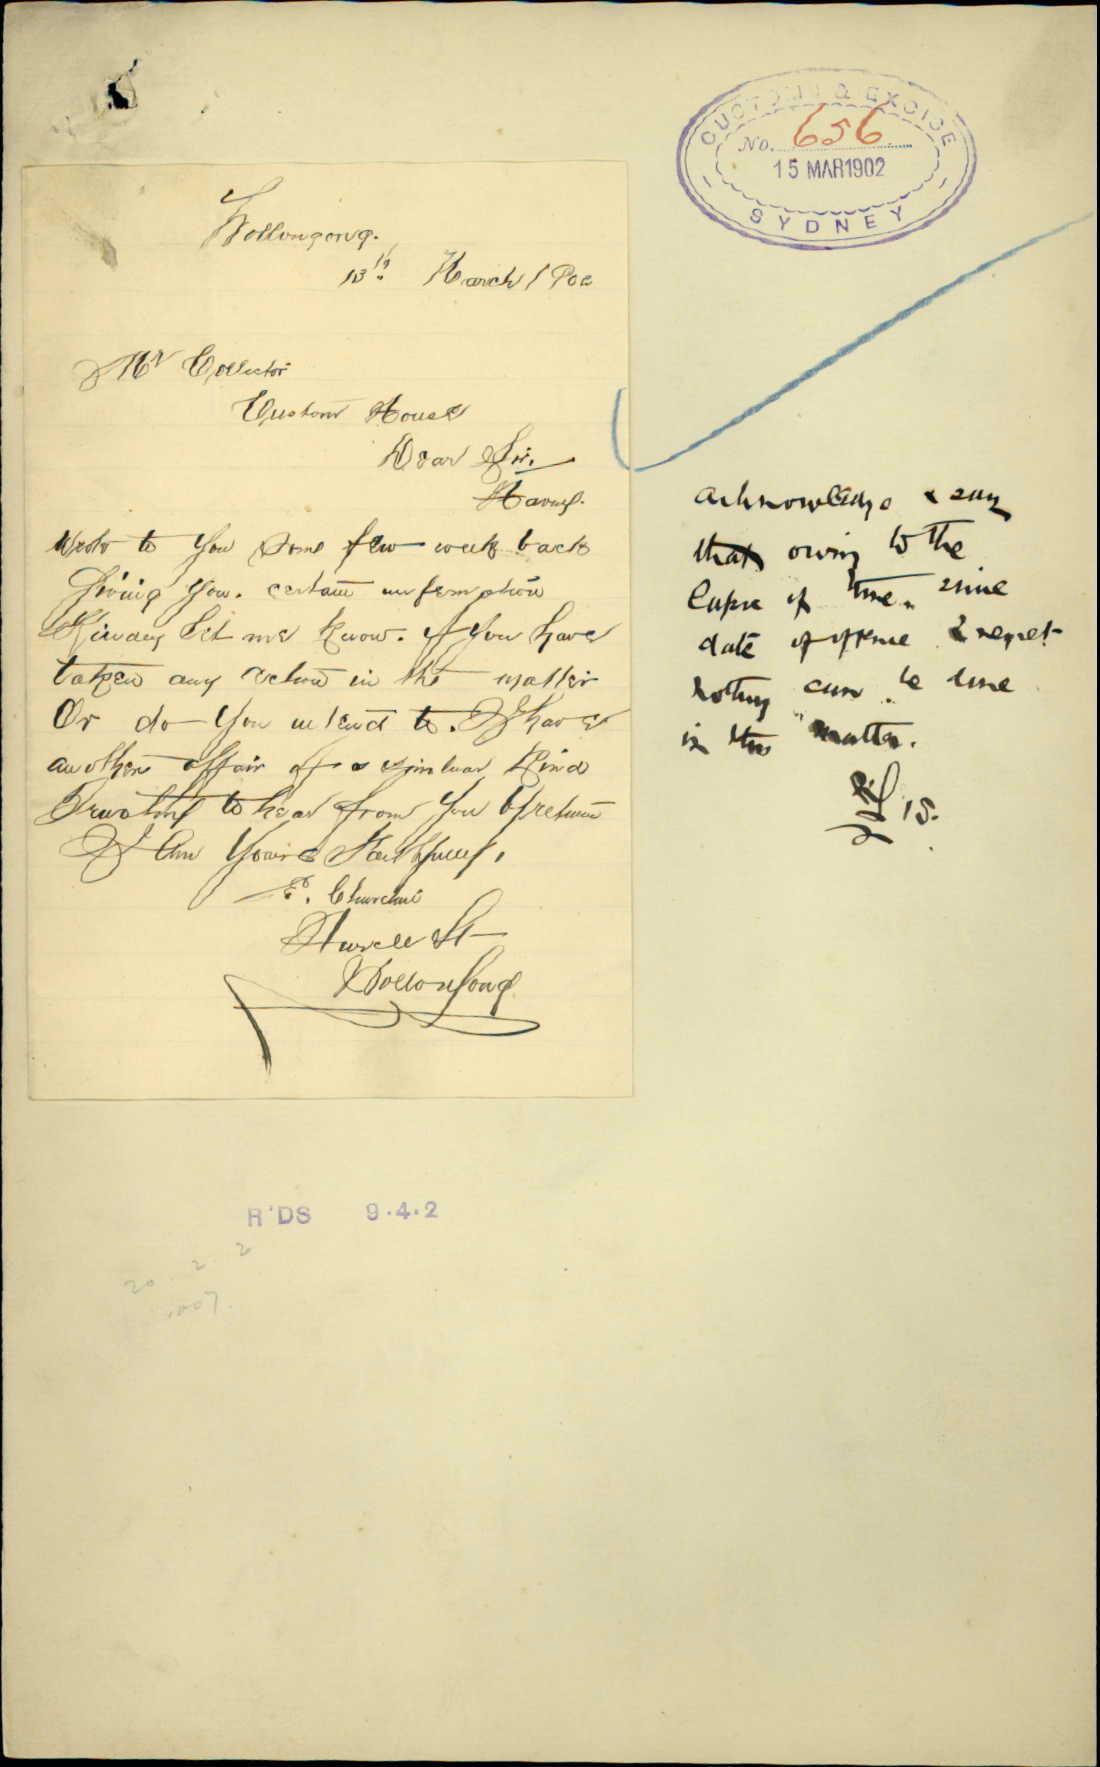 CUSTOMS & EXCISE
No. 656
15 MAR 1902
SYDNEY
Wollongong.
13th March 1902
Mr Collector
Custom House
Dear Sir.
Having
wrote to you Some few week back
Giving you. certain information
Kindly Let me know. if you have
taken any action in the matter
Or do you intend to. I have
another affair of a similar Kind
Trusting to hear from you by return
I Am Yours Faithfully,
Churchill
St
Wollongong
acknowledge & say
that owing to the
lapse of time since
date of offence I regret
nothing can be done
in this matter.
15.
R'DS 9.4.2
20 2 2
1007.